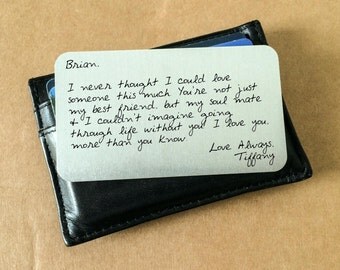 Brian,
I never thought I could love
someone this much You're not just
my best friend, but my soul mate
& I couldn't imagine going
through life without you. I love you,
more than you know
Love Always,
Tiffany